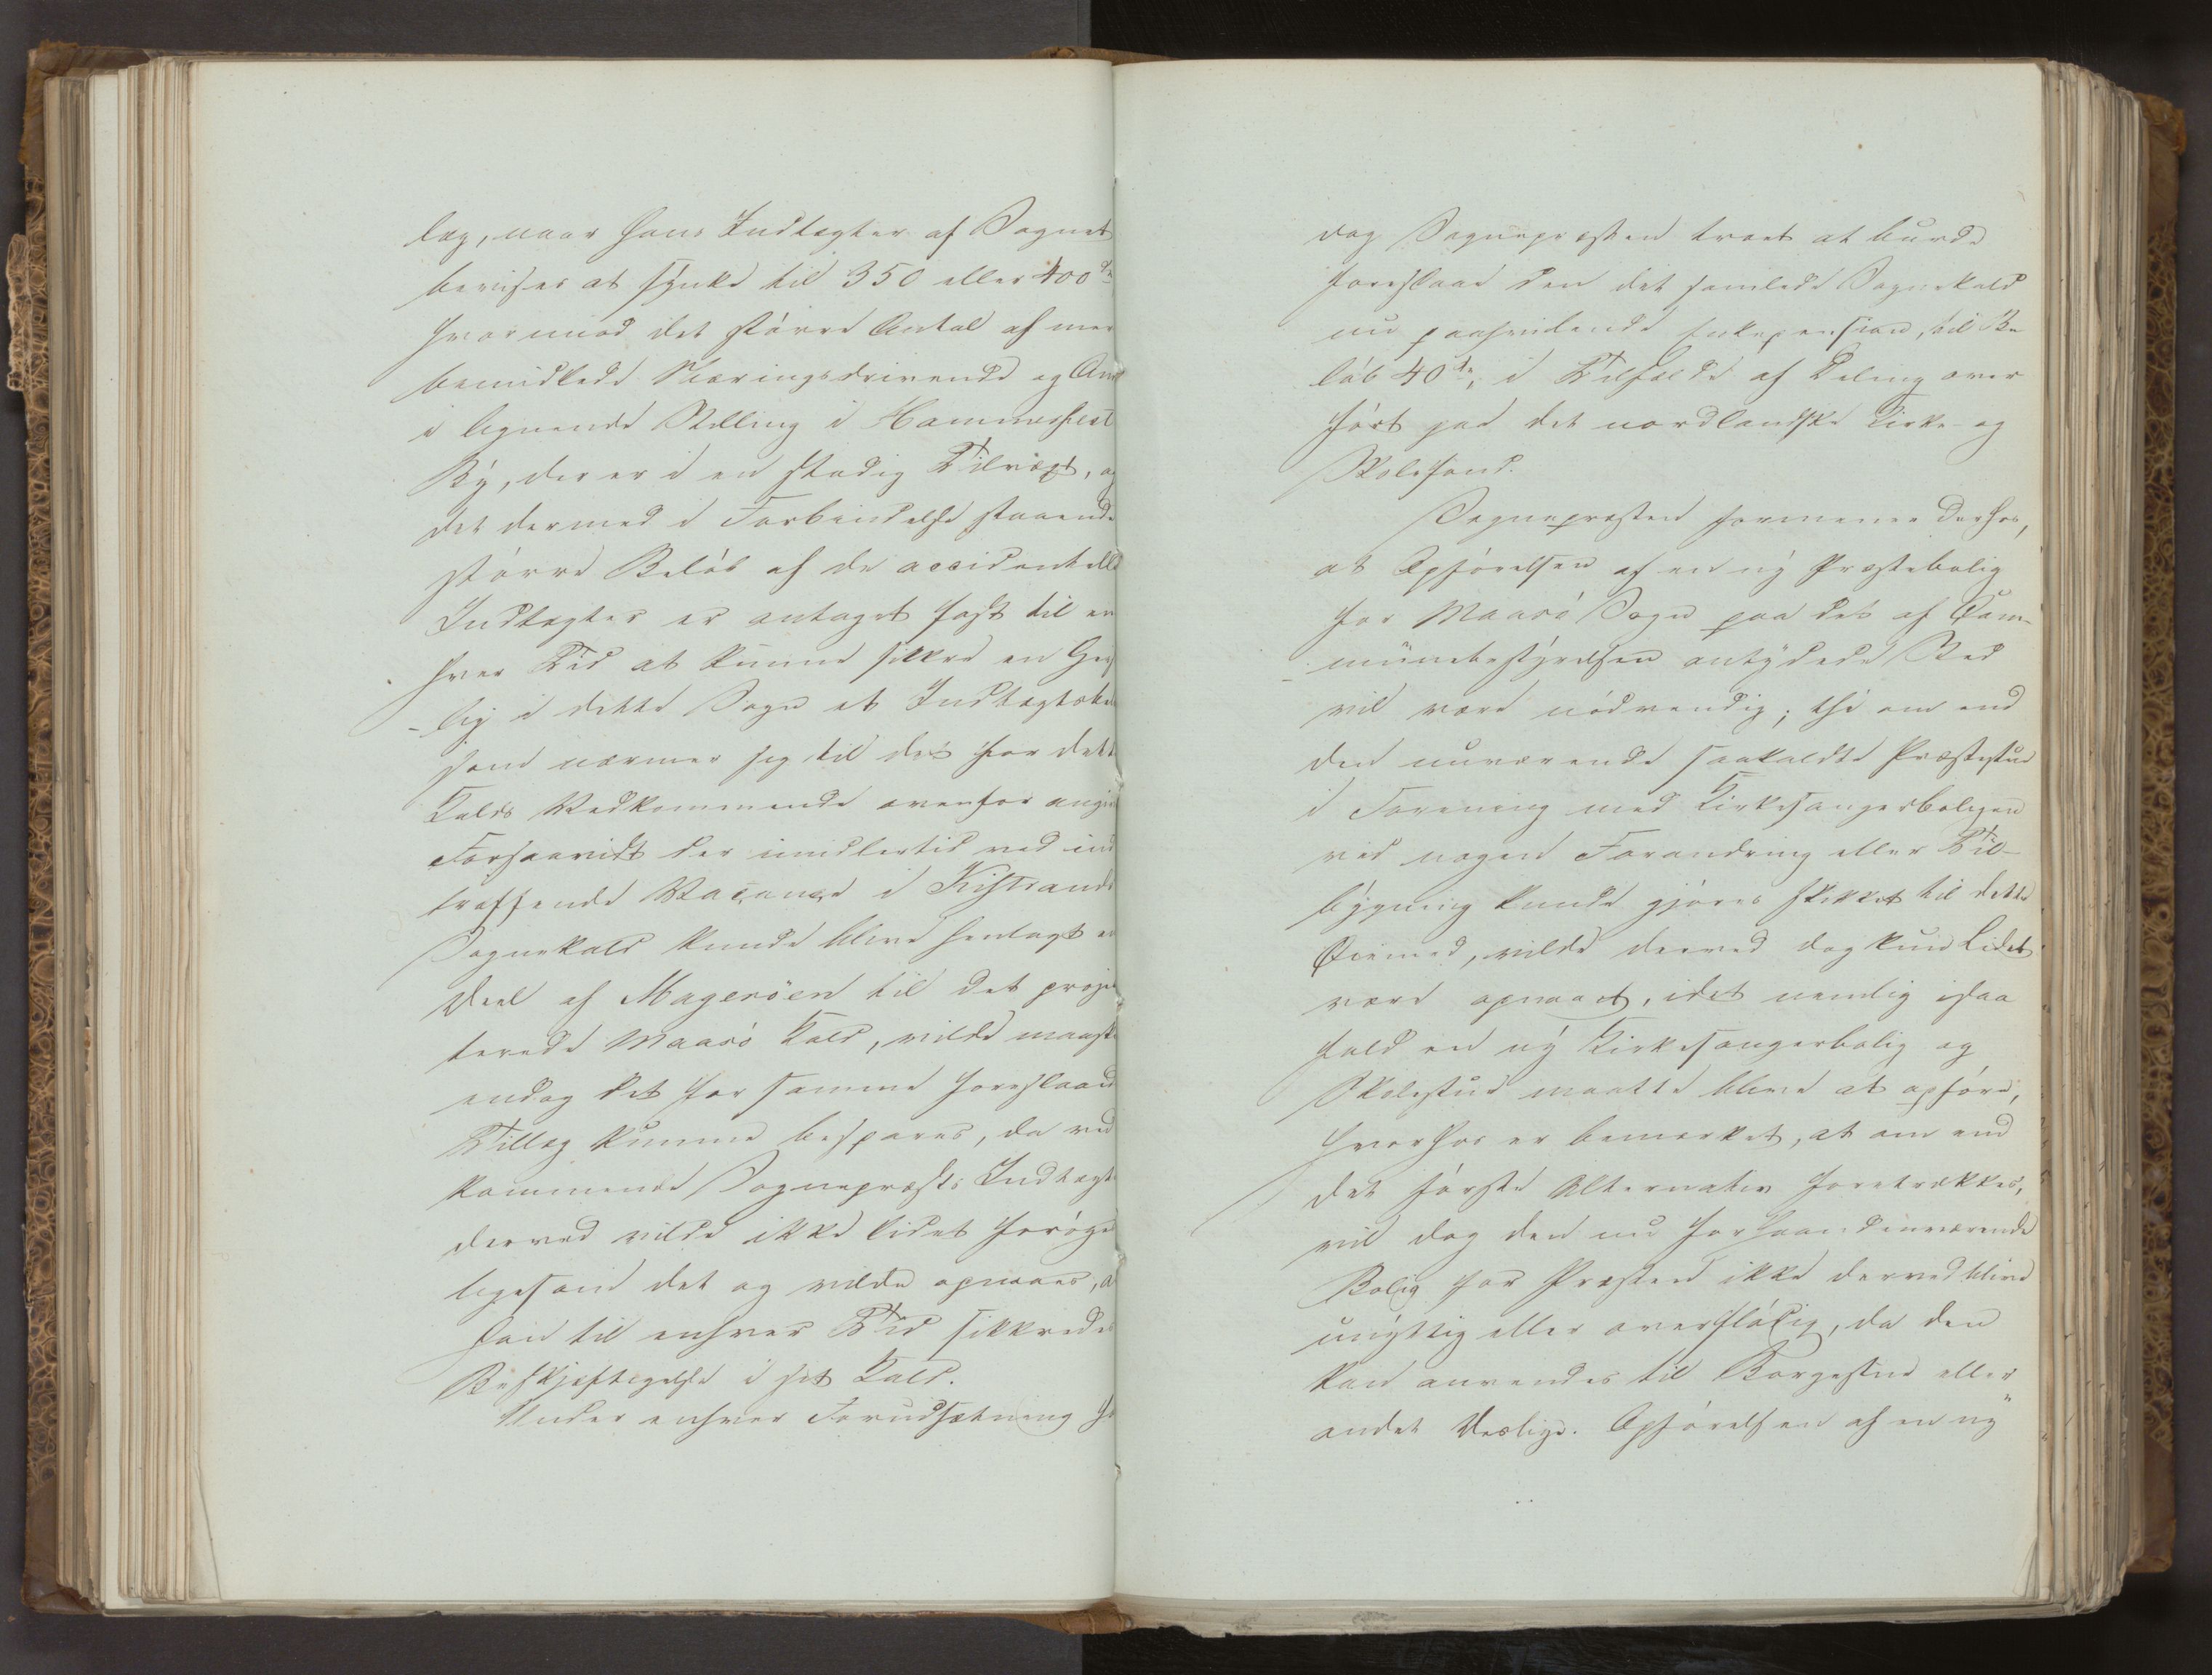 læg, naar hans Indtægter af Sognet
bevises at synke til 350 eller 400 d
hvorimod det større Antal af mer
bemidlede Næringsdrivende og An
i lignende Stilling i Hammerfest
By, der er i en stadig Tilvæxt, og
det dermed i Forbindelse staaende
større Beløb af de accidentelle
Indtægter er antaget fast til en
hver Tid at kunne sikkre en Geist
lig i dette Sogn et Indtægts
som nærmer sig til det for dette
Kalds Vedkommende ovenfor angiv
Forsaavidt der imidlertid ved ind
træffende Vacance i Kistrands
Sognekald kunde blive henlagt en
Deel af Magerøen til det projek
terede Maasø Kald, vilde maaske
endog det for samme foreslaaede
Tillæg kunne bespares, da ved
kommende Sognepræsts Indtægt
derved vilde ikke lidet forøges
ligesom det og vilde opnaaes, a
han til enhver Tid sikkredes
Beskjæftigelse i sit Kald.
Under enhver Forudsætning ha
dog Sognepræsten troet at burde
foreslaae den det samlede Sognekald
nu paahvilende Enkepension, til Be
løb 40 d, i Tilfælde af Deling over
ført paa det nordlandske Kirke- og
Skolefond.
Sognepræsten formener derhos,
at Opførelsen af en ny Præstebolig
for Maasø Sogn paa det af Com-
munebestyrelsen antydede Sted
vil være nødvendig; thi om end
den nuværende saakaldte Præstestue
i Forening med Kirkesangerboligen
ved nogen Forandring eller Til-
bygning kunde gjøres skikket til dette
Øiemed, vilde derved dog kun Lidet
være opnaaet, idet nemlig isaa
Fald en ny Kirkesangerbolig og
Skolestue maatte blive at opføre,
hvorhos er bemærket, at om end
det første Alternativ foretrækkes,
vil dog den nu forhaandenværende
Bolig for Præsten ikke derved blive
unyttig eller overflødig, da den
kan anvendes til Borgestue eller
andet Deslige. Opførelsen af en ny